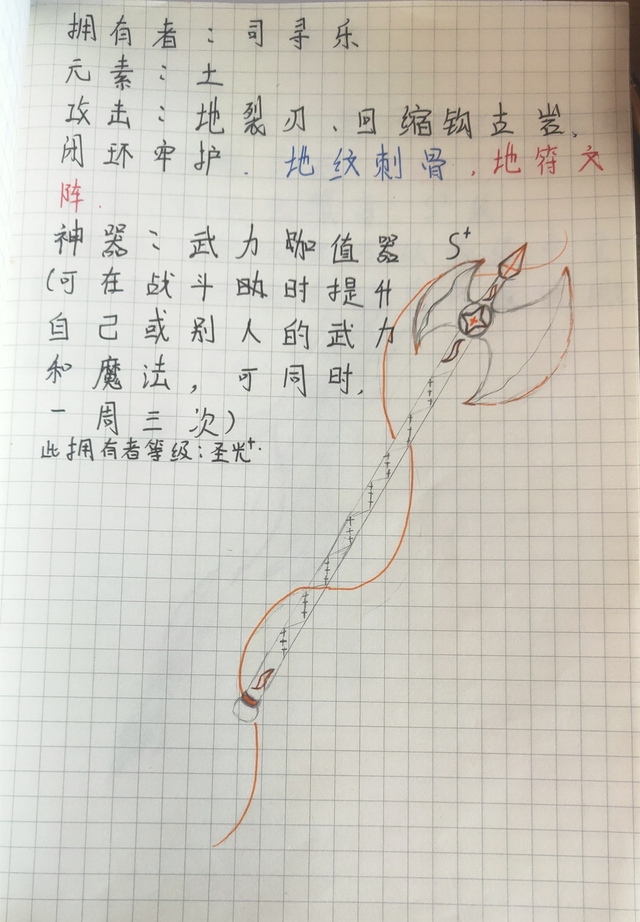 拥有者：司寻乐
元素：土
攻击：地裂刃、回缩钩古岩、
闭环牢护、地纹刺骨，地符文
阵.
神器：武力咖值器 S+
(可在战斗时提升
自己或别人的武力
和魔法，可同时，
一周三次)
此拥有者等级：圣光+.